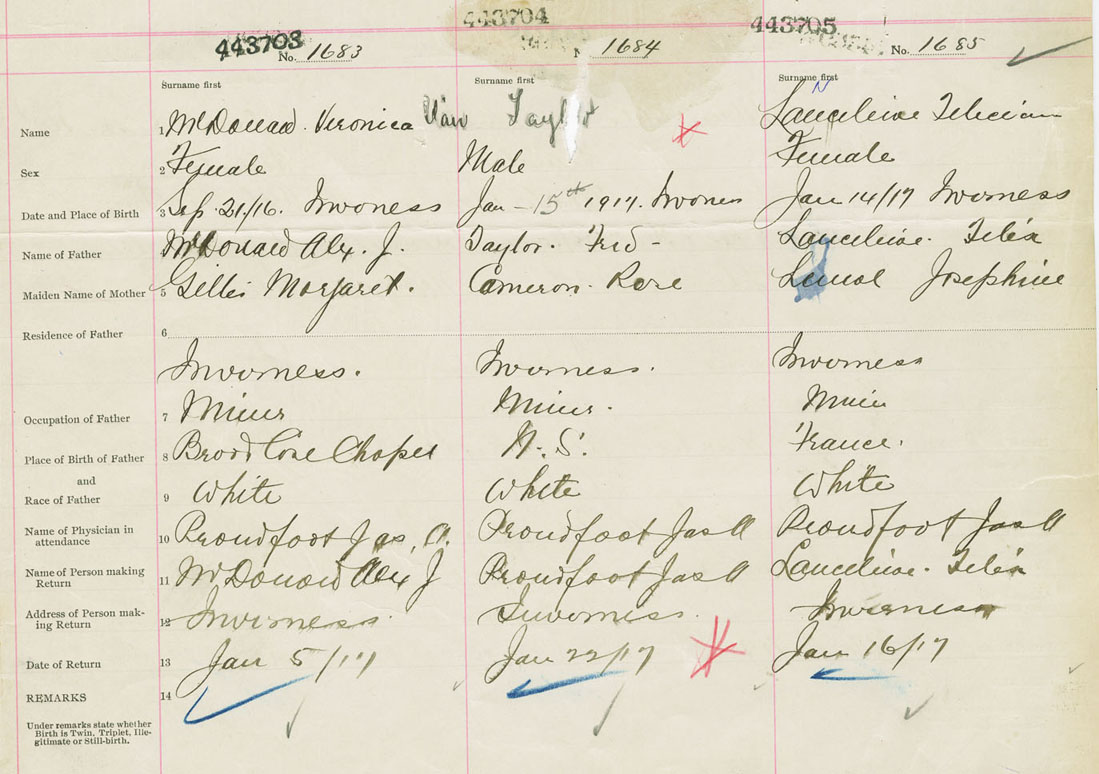 443703 443704 443705
No. 1683 1684 No. 1685
Surname first Surname first Surname first
Name 1 McDonald. Veronica Taylor
Sex 2 Female Male Female
Date and Place of Birth 3 Sep. 21/16. Inverness Jan - 15th 1917. Inverness Jan 14/17 Inverness
Name of Father McDonald Alex. J. Taylor. Fred -
Maiden Name of Mother 5 Gillis Margaret. Cameron. Rose Josephine
Residence of Father 6
Inverness. Inverness. Inverness
Occupation of Father 7 Miner Miner. Miner
Place of Birth of Father 8 Broad Cove Chapel N. S. France.
and
Race of Father 9 White White White
Name of Physician in 10 Proudfoot Jas. A. Proudfoot Jas A Proudfoot Jas A
attendance
Name of Person making 11 McDonald Alex J Proudfoot Jas A
Return
Address of Person mak- 12 Inverness. Inverness. Inverness
ing Return
Date of Return 13 Jan 5/17 Jan 22/17 Jan 16/17
REMARKS 14
Under remarks state whether
Birth is Twin, Triplet, Ille-
gitimate or Still-birth.